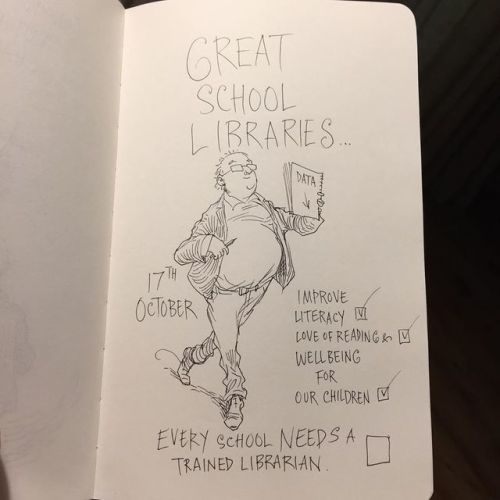 GREAT
SCHOOL
LIBRARIES...
DATA
17TH
OCTOBER
IMPROVE
LITERACY
LOVE OF READING &
WELLBEING
FOR
OUR CHILDREN
EVERY SCHOOL NEEDS A
TRAINED LIBRARIAN.